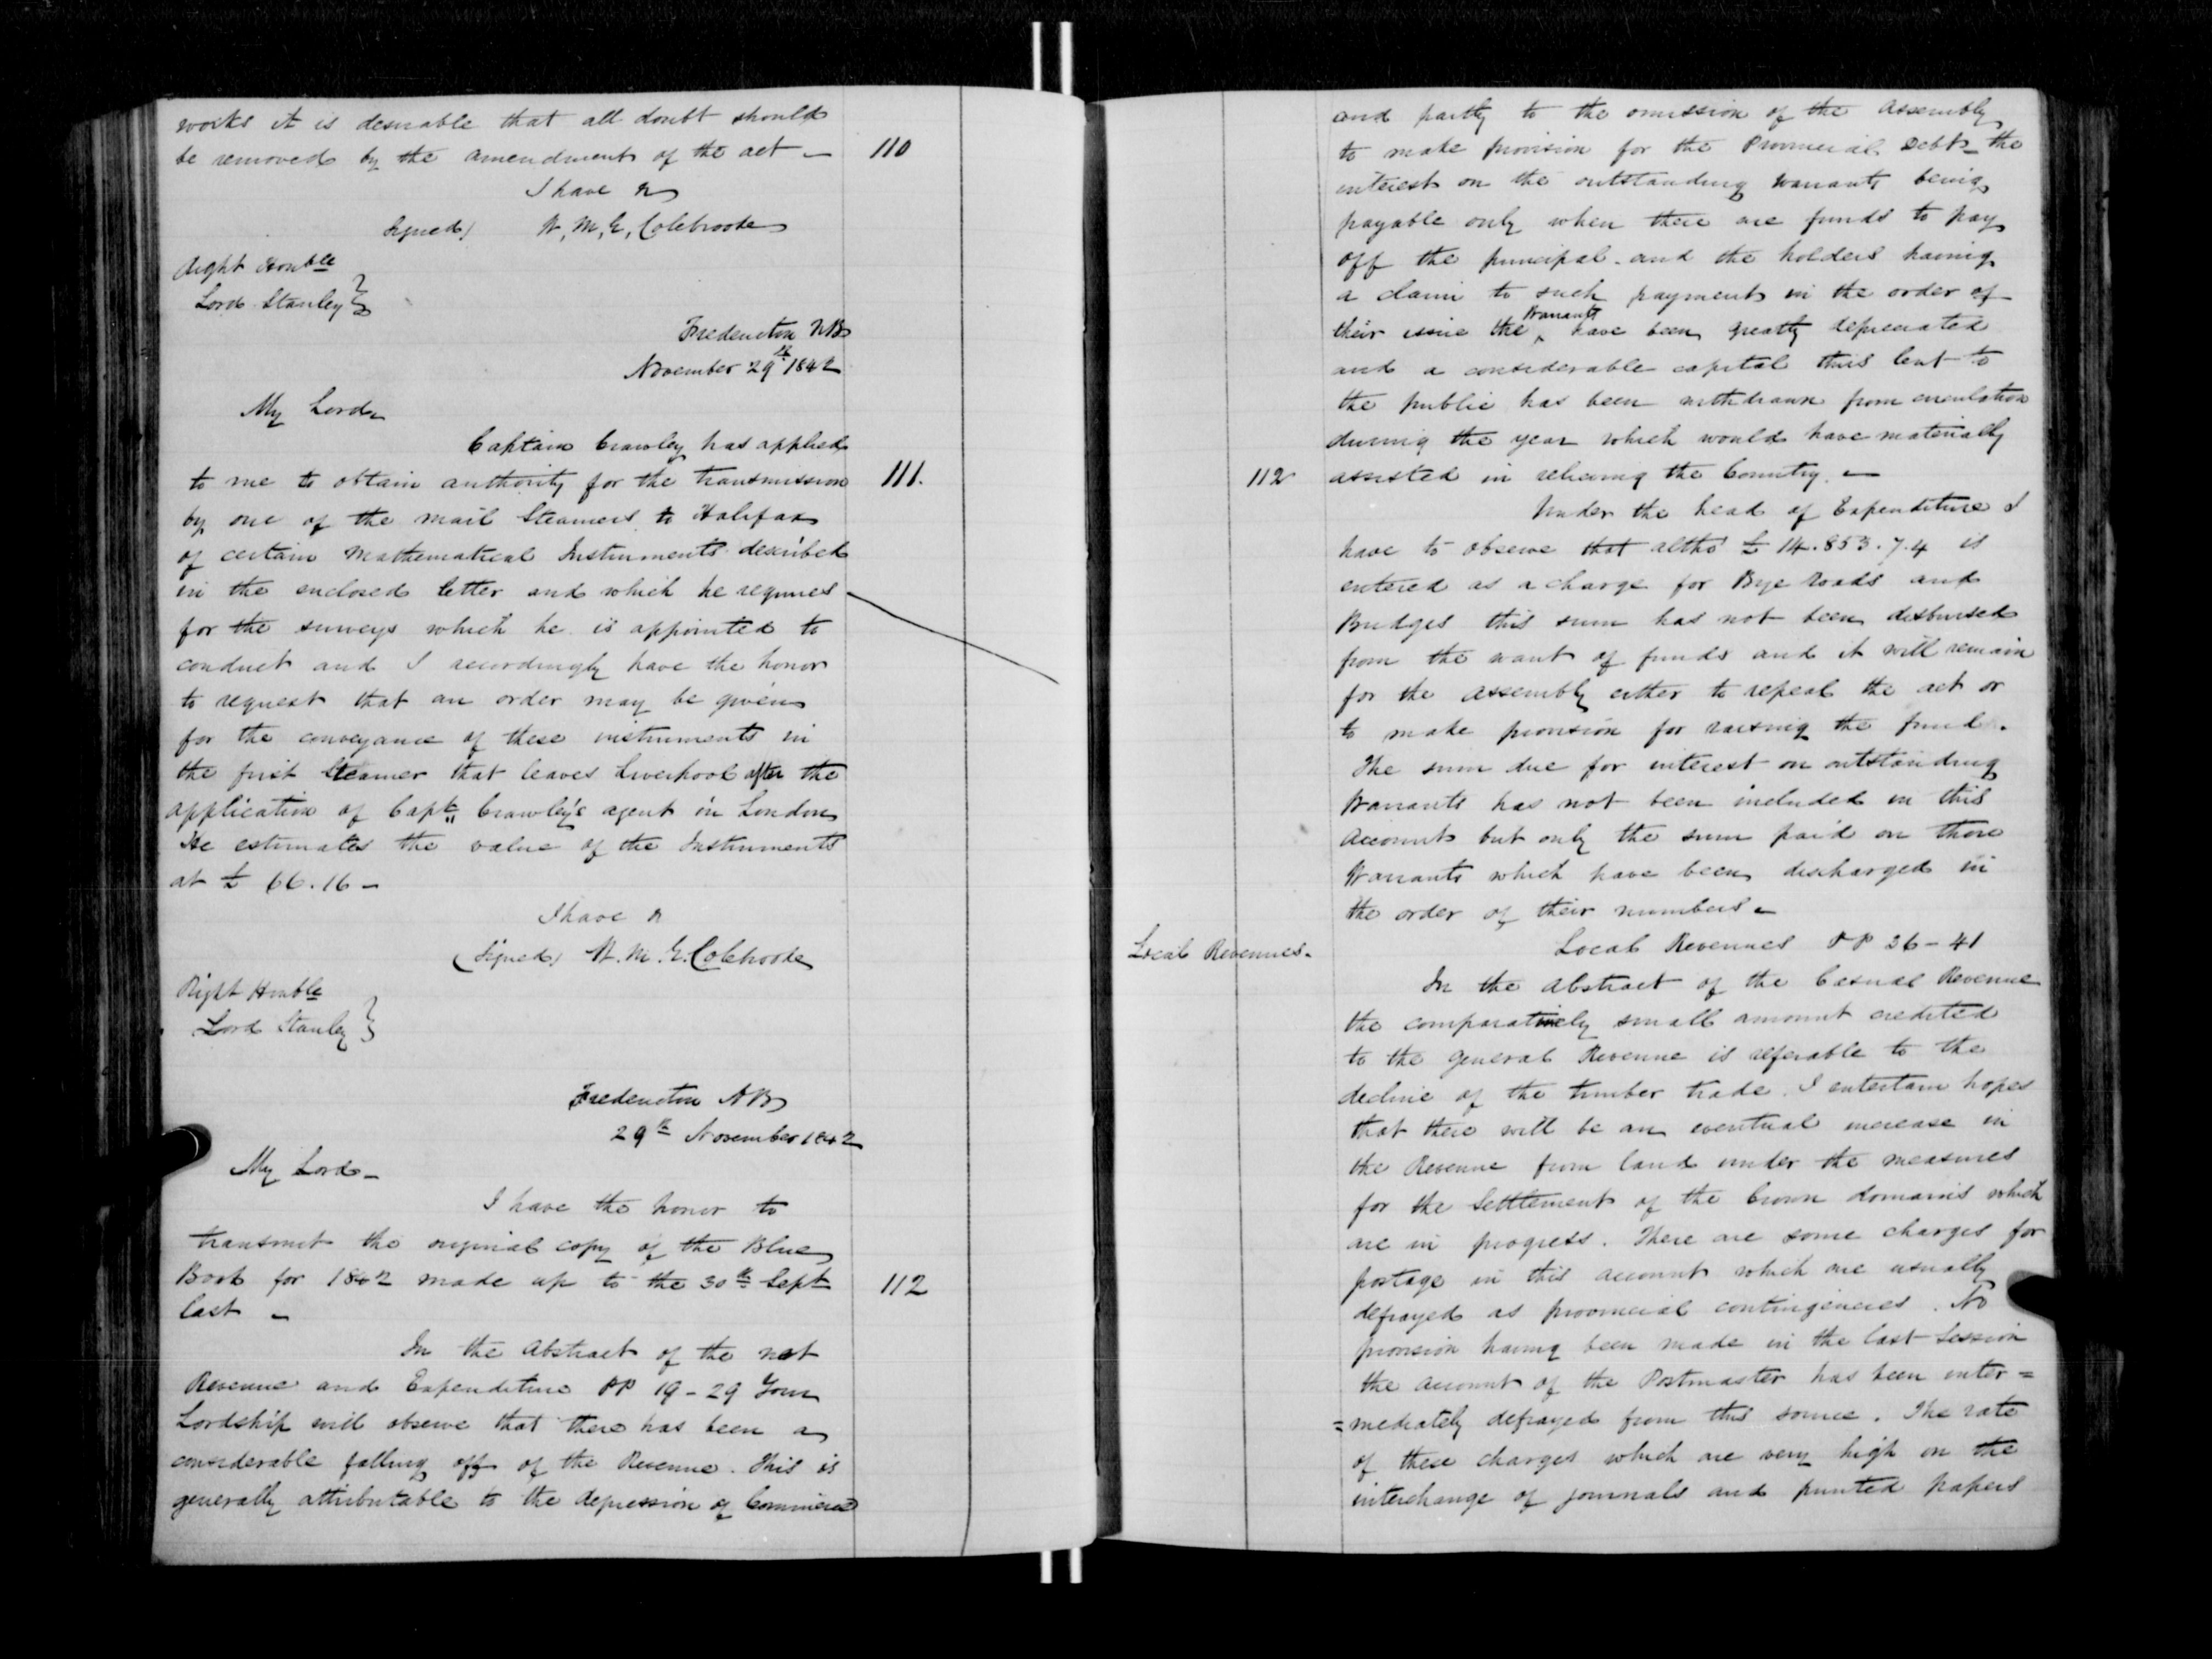 works it is desirable that all doubt should
be removed by the amendment of the act - 110
I have &
Signed) W. M. G. Colebrooke
Right Honble
Lord Stanley
Fredericton NB
November 29th 1842
My Lord
Captain Crawley has applied
to me to obtain authority for the transmission 111.
by one of the mail Steamers to Halifax
of certain Mathematical Instruments described
in the enclosed letter and which he requires
for the surveys which he is appointed to
conduct and I accordingly have the honor
to request that an order may be given
for the conveyance of these instruments in
the first Steamer that leaves Liverpool after the
application of Capt Crawley's agent in London
He estimates the value of the Instruments
at £ 66.16 -
I have &
(Signed) W. M. G. Colebrooke
Right Honble
Lord Stanley
Fredericton NB
29th November 1842
My Lord -
I have the honor to
transmit the original copy of the Blue
Book for 1842 made up to the 30th Sept 112
last -
In the Abstract of the net
Revenue and Expenditure PP 19 - 29 Your
Lordship will observe that there has been a
considerable falling off of the Revenue. This is
generally attributable to the depression of Commerce
and partly to the omission of the Assembly
to make provision for the Provincial Debt - the
interest on the outstanding warrants being
payable only when there are funds to pay
off the principal - and the holders having
a claim to such payment in the order of
their issue the ^ Warrants have been greatly depreciated
and a considerable capital thus lent to
the public has been withdrawn from circulation
during the year which would have materially
112 assisted in relieving the Country. -
Under the head of Expenditure I
have to observe that altho' £ 14.853.7.4 is
entered as a charge for Bye roads and
Bridges this sum has not been disbursed
from the want of funds and it will remain
for the Assembly either to repeal the act or
to make provision for raising the fund.
The sum due for interest on outstanding
Warrants has not been included in this
Account but only the sum paid on those
Warrants which have been discharged in
the order of their numbers -
Local Revenues. Local Revenues PP 36 - 41
In the Abstract of the Casual Revenue
the comparatively small amount credited
to the general Revenue is referable to the
decline of the timber trade. I entertain hopes
that there will be an eventual increase in
the Revenue from land under the measures
for the Settlement of the Crown domains which
are in progress. There are some charges for
postage in this account which are usually
defrayed as provincial contingencies. No
provision having been made in the last Session
the account of the Postmaster has been inter =
= mediately defrayed from this source. The rate
of these charges which are very high on the
interchange of journals and printed papers